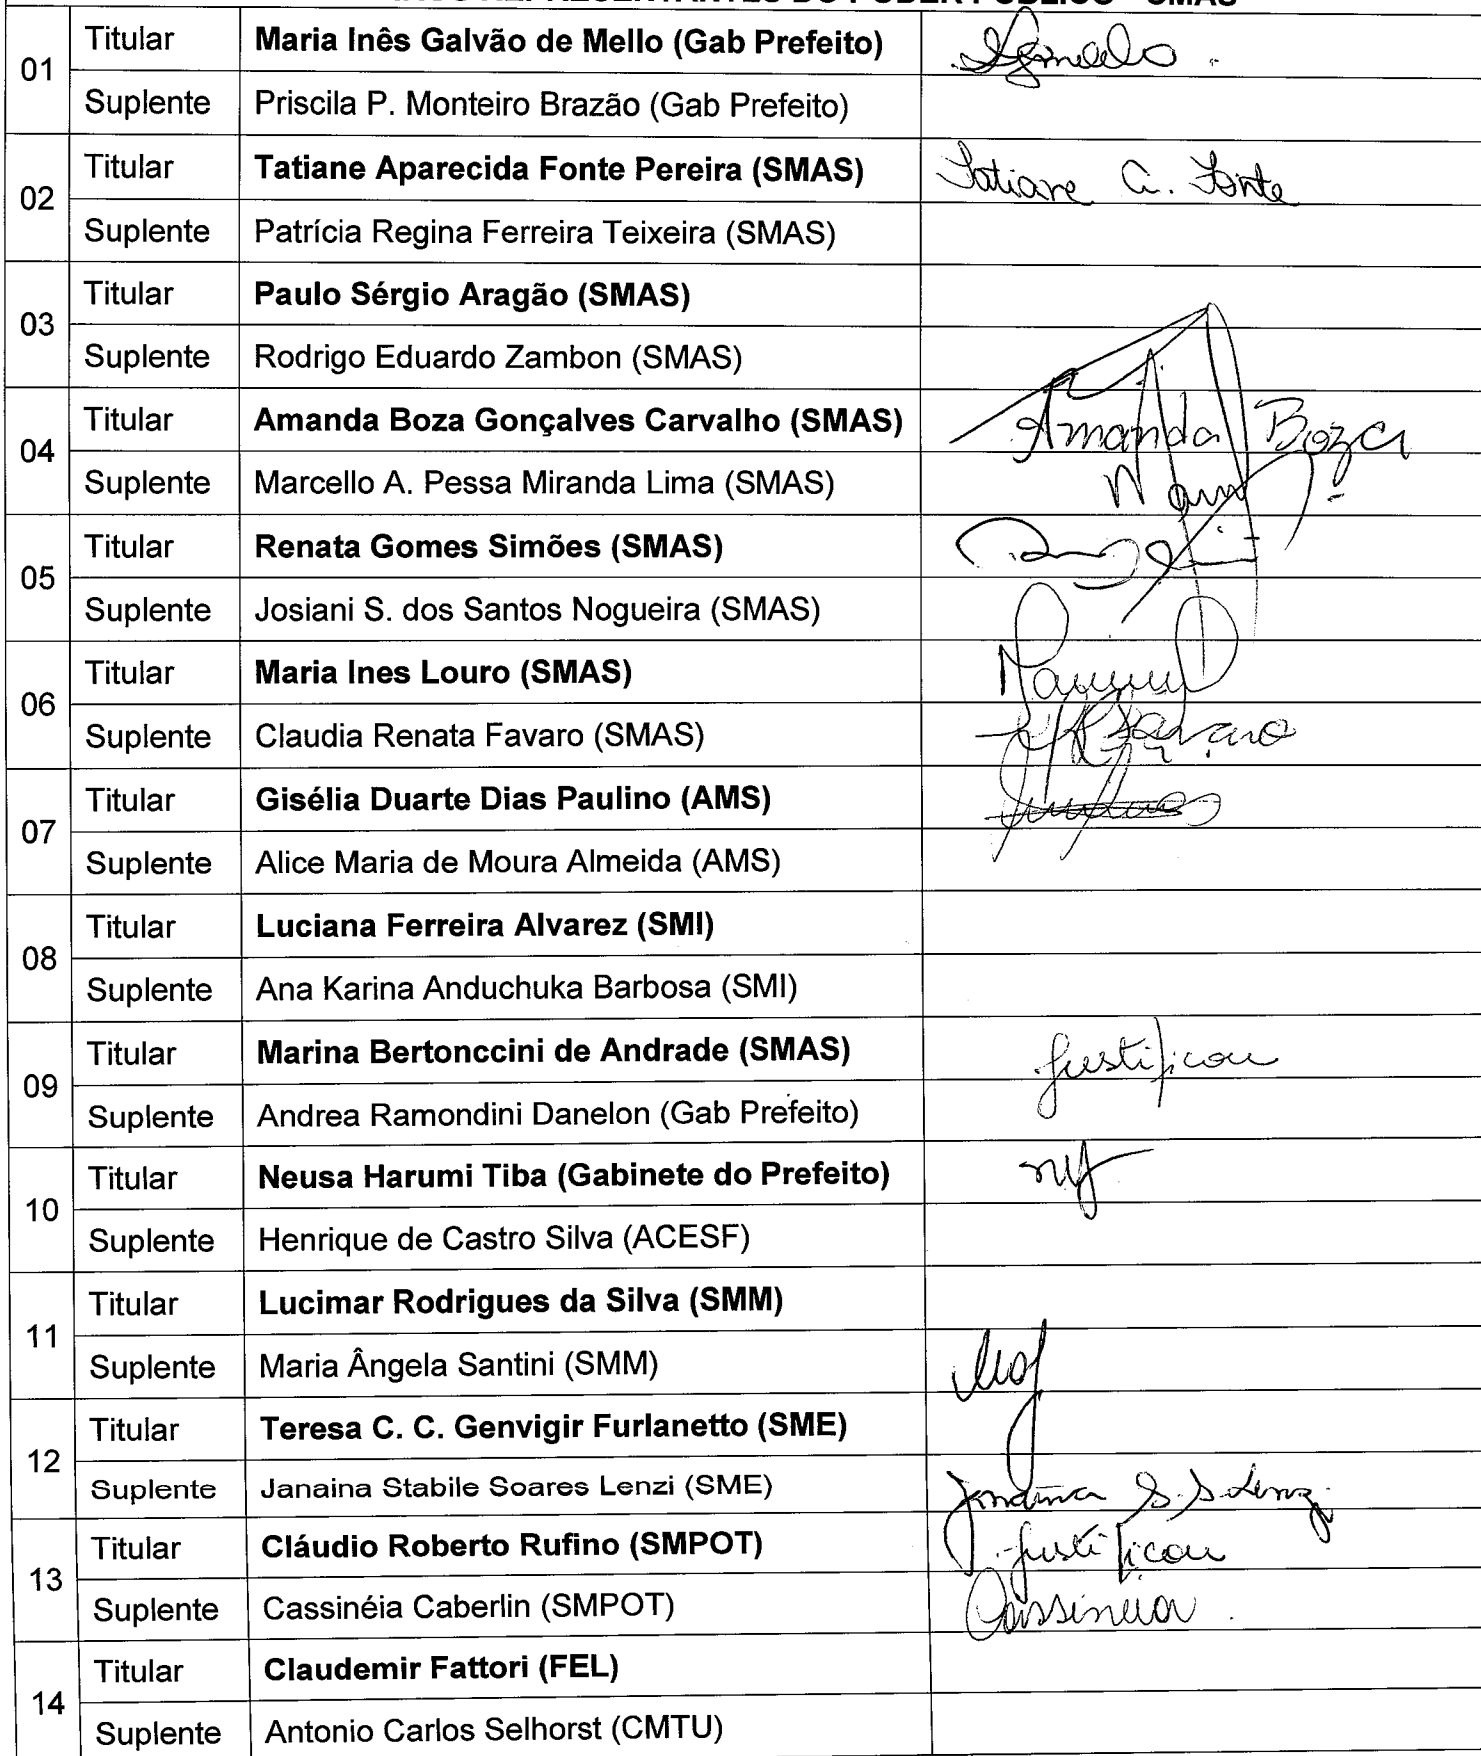 REPRESENTANTES DO PODER PÚBLICO - CMAS
01 Titular Maria Inês Galvão de Mello (Gab Prefeito)
Suplente Priscila P. Monteiro Brazão (Gab Prefeito)
02 Titular Tatiane Aparecida Fonte Pereira (SMAS) Tatiane A. Fonte
Suplente Patrícia Regina Ferreira Teixeira (SMAS)
03 Titular Paulo Sérgio Aragão (SMAS)
Suplente Rodrigo Eduardo Zambon (SMAS)
04 Titular Amanda Boza Gonçalves Carvalho (SMAS) Amanda Boza
Suplente Marcello A. Pessa Miranda Lima (SMAS)
05 Titular Renata Gomes Simões (SMAS)
Suplente Josiani S. dos Santos Nogueira (SMAS)
06 Titular Maria Ines Louro (SMAS)
Suplente Claudia Renata Favaro (SMAS) Favaro
07 Titular Gisélia Duarte Dias Paulino (AMS)
Suplente Alice Maria de Moura Almeida (AMS)
08 Titular Luciana Ferreira Alvarez (SMI)
Suplente Ana Karina Anduchuka Barbosa (SMI)
09 Titular Marina Bertonccini de Andrade (SMAS) justificou
Suplente Andrea Ramondini Danelon (Gab Prefeito)
10 Titular Neusa Harumi Tiba (Gabinete do Prefeito)
Suplente Henrique de Castro Silva (ACESF)
11 Titular Lucimar Rodrigues da Silva (SMM)
Suplente Maria Ângela Santini (SMM)
12 Titular Teresa C. C. Genvigir Furlanetto (SME)
Suplente Janaina Stabile Soares Lenzi (SME) Janaina S. S. Lenzi
13 Titular Cláudio Roberto Rufino (SMPOT) justificou
Suplente Cassinéia Caberlin (SMPOT) Cassinéia
14 Titular Claudemir Fattori (FEL)
Suplente Antonio Carlos Selhorst (CMTU)